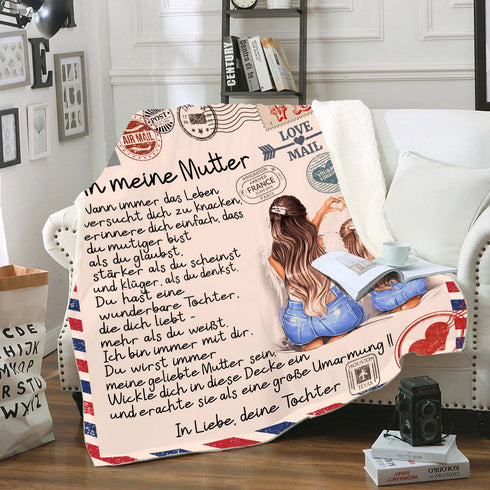 CENTURY
AIR MAIL
POST
LOVE
MAIL
FRANCE
PARIS
n meine Mutter
Wann immer das Leben
versucht dich zu knacken,
erinnere dich einfach, dass
du mutiger bist
als du glaubst,
stärker als du scheinst
und klüger, als du denkst.
Du hast eine
wunderbare Tochter,
die dich liebt -
mehr als du weißt.
Ich bin immer mit dir.
Du wirst immer
meine geliebte Mutter sein,
Wickle dich in diese Decke ein
und erachte sie als eine große Umarmung !!
In Liebe, deine Tochter
HOUSTON
TEXAS